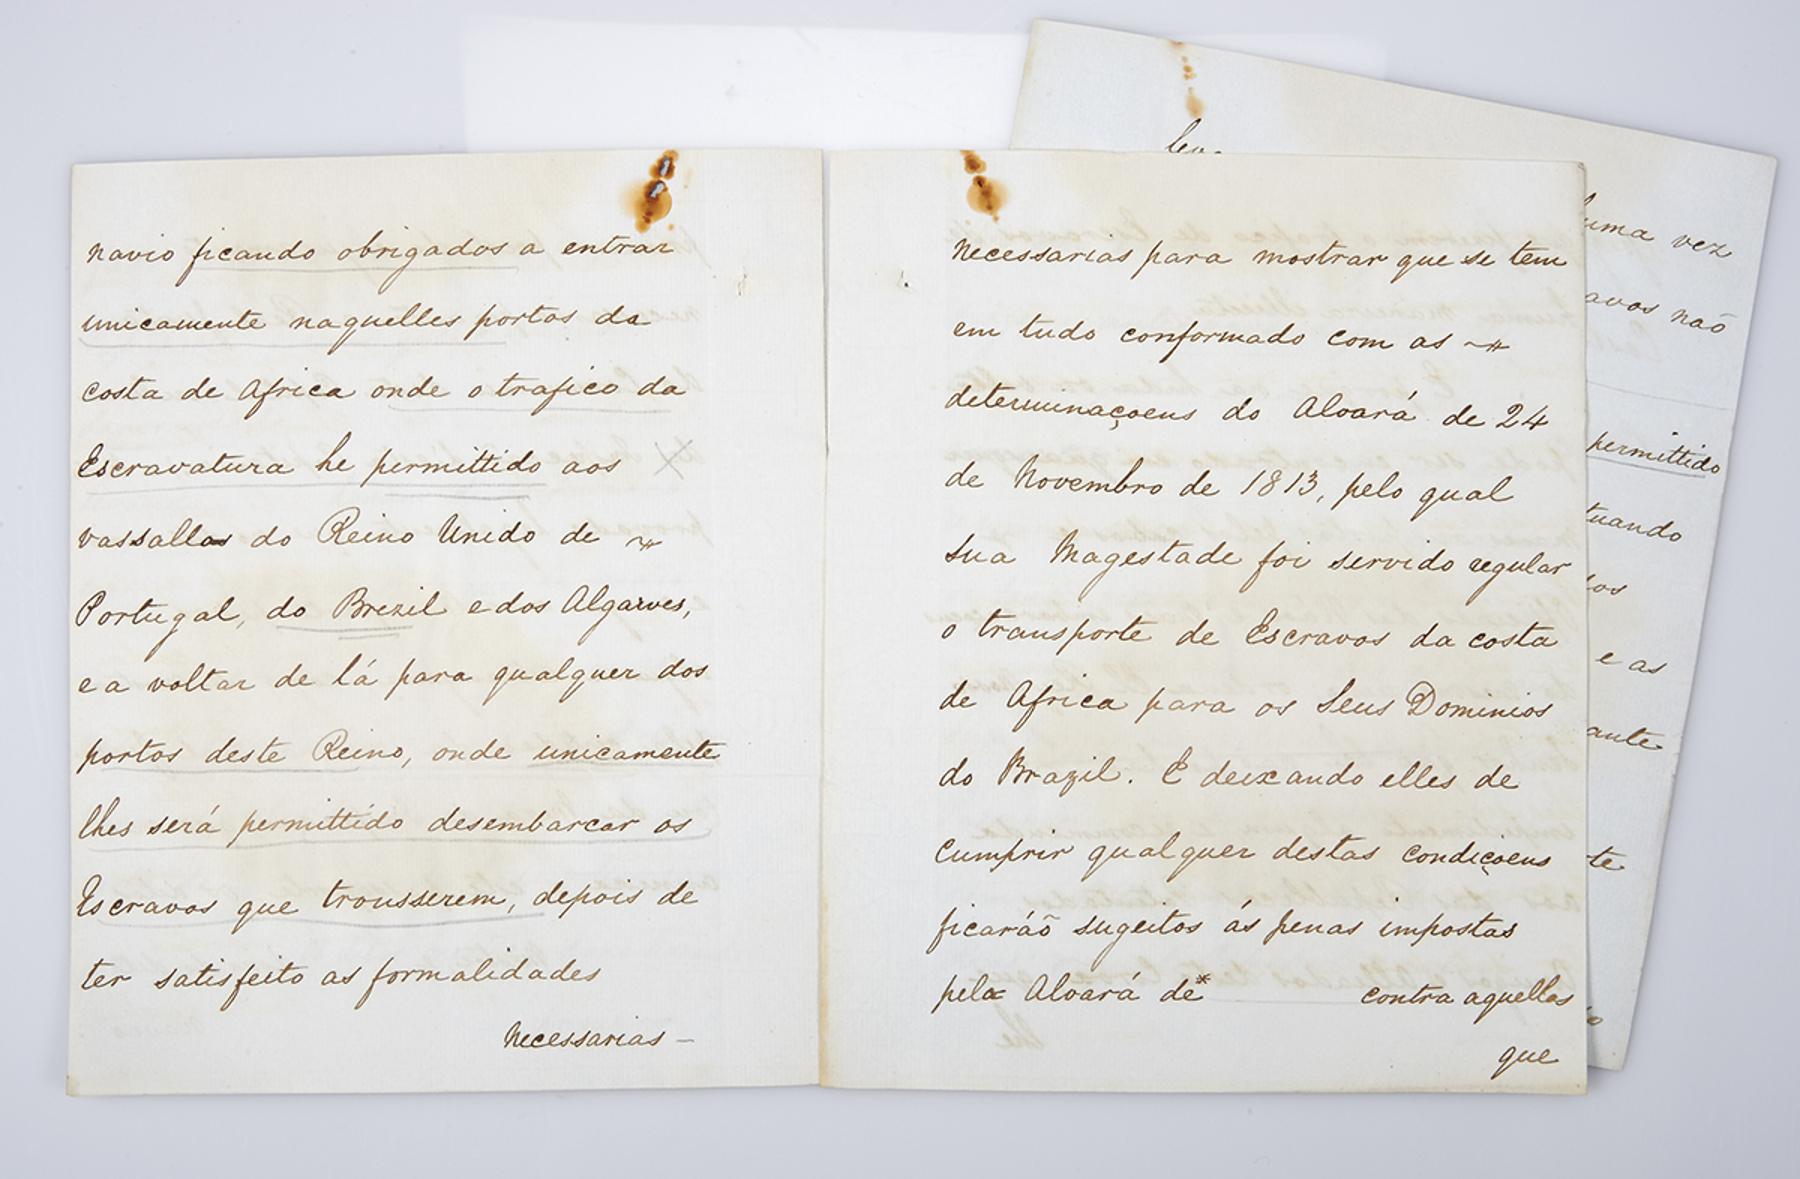 navio ficando obrigados a entrar
unicamente naquelles portos da
costa de Africa onde o trafico da
Escravatura he permittido aos
vassallos do Reino Unido de
Portugal, do Brezil e dos Algarves,
e a voltar de lá para qualquer dos
portos deste Reino, onde unicamente
lhes será permittido desembarcar os
Escravos que trousserem, depois de
ter satisfeito as formalidades
necessarias –
necessarias para mostrar que se tem
em tudo conformado com as
determinaçoens do Alvará de 24
de Novembro de 1813, pelo qual
Sua Magestade foi servido regular
o transporte de Escravos da costa
de Africa para os Seus Dominios
do Brazil. E deixando elles de
cumprir qualquer destas condiçoens
ficaráõ sugeitos ás penas impostas
pelo Alvará de* contra aquelles
que
uma vez
avos naõ
permittido
uando
os
e as
ante
te